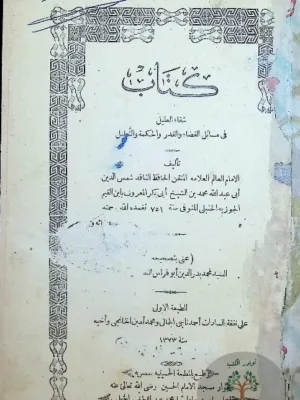 كتاب
شفاء العليل
فى مسائل القضاء والقدر والحكمة والتعليل
تأليف
الامام العالم العلامه المتقن الحافظ الناقد شمس الدين
أبى عبد الله محمد بن الشيخ أبى بكر المعروف بابن القيم
الجوزيه الحنبلى المتوفى سنة ٧٥١ تغمده الله
عنى بتصحيحه
السيد محمد بدر الدين أبو فراس
الطبعة الاولى
على نفقة السادات أحمد ناجى الجمالى ومحمد أمين الخانجى وأخيه
سنة ١٣٢٣
طبع بالمطبعة الحسينية
مسجد الامام الحسين رضى الله تعالى عنه